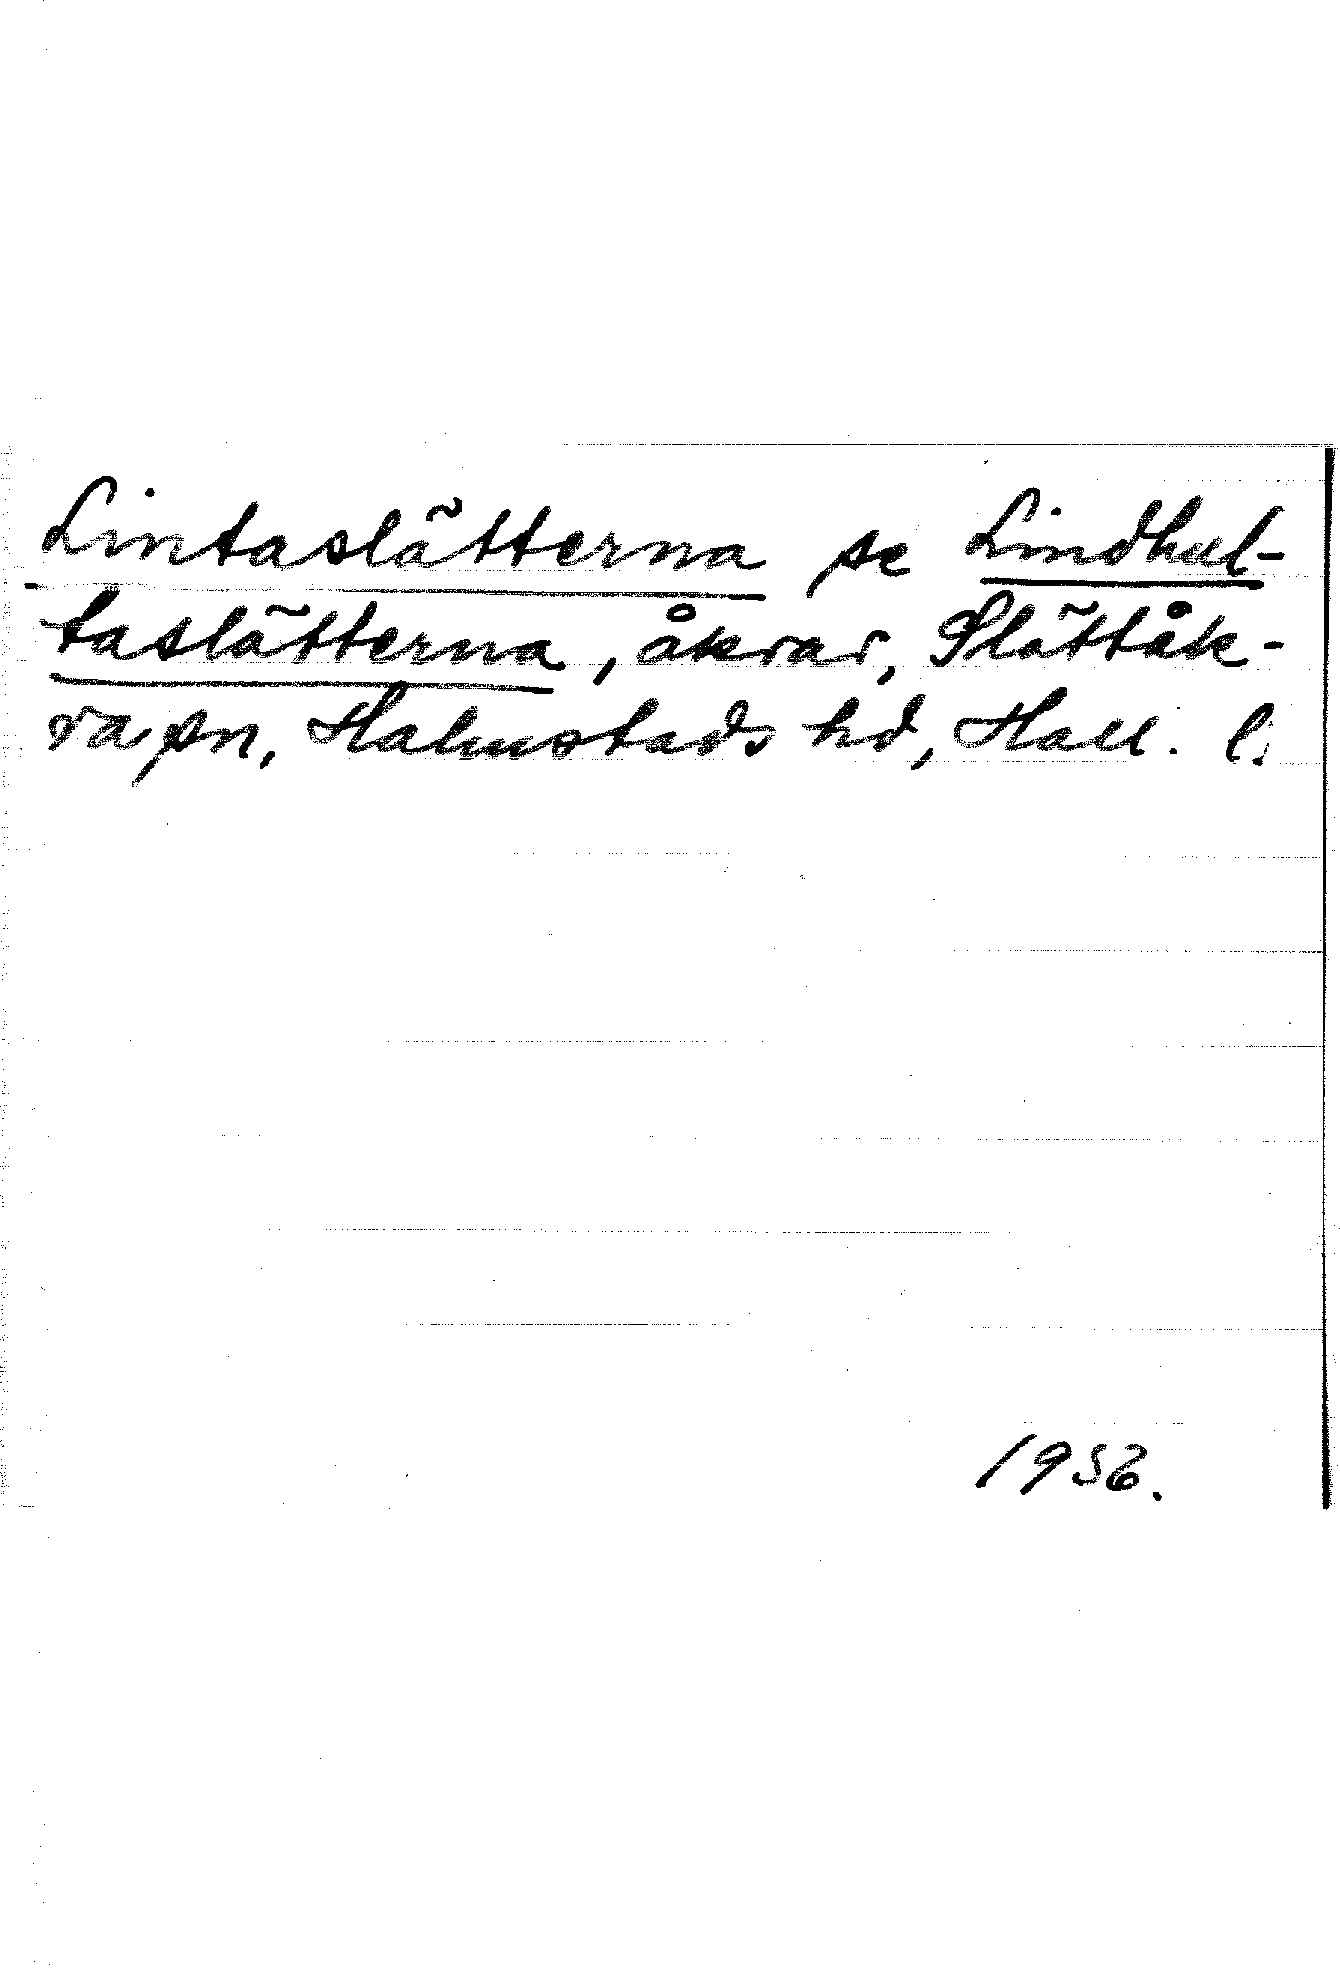 Lintaslätterna se Lindhul-
taslätterna, åkrar, Slättåk-
ra sn, Halmstads hd, Hall. l.
1956.